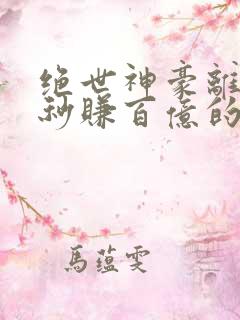 绝世神豪離
秒賺百億的
馬蘊雯